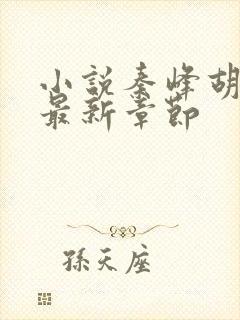 小説秦峰胡
最新章節
孫天座